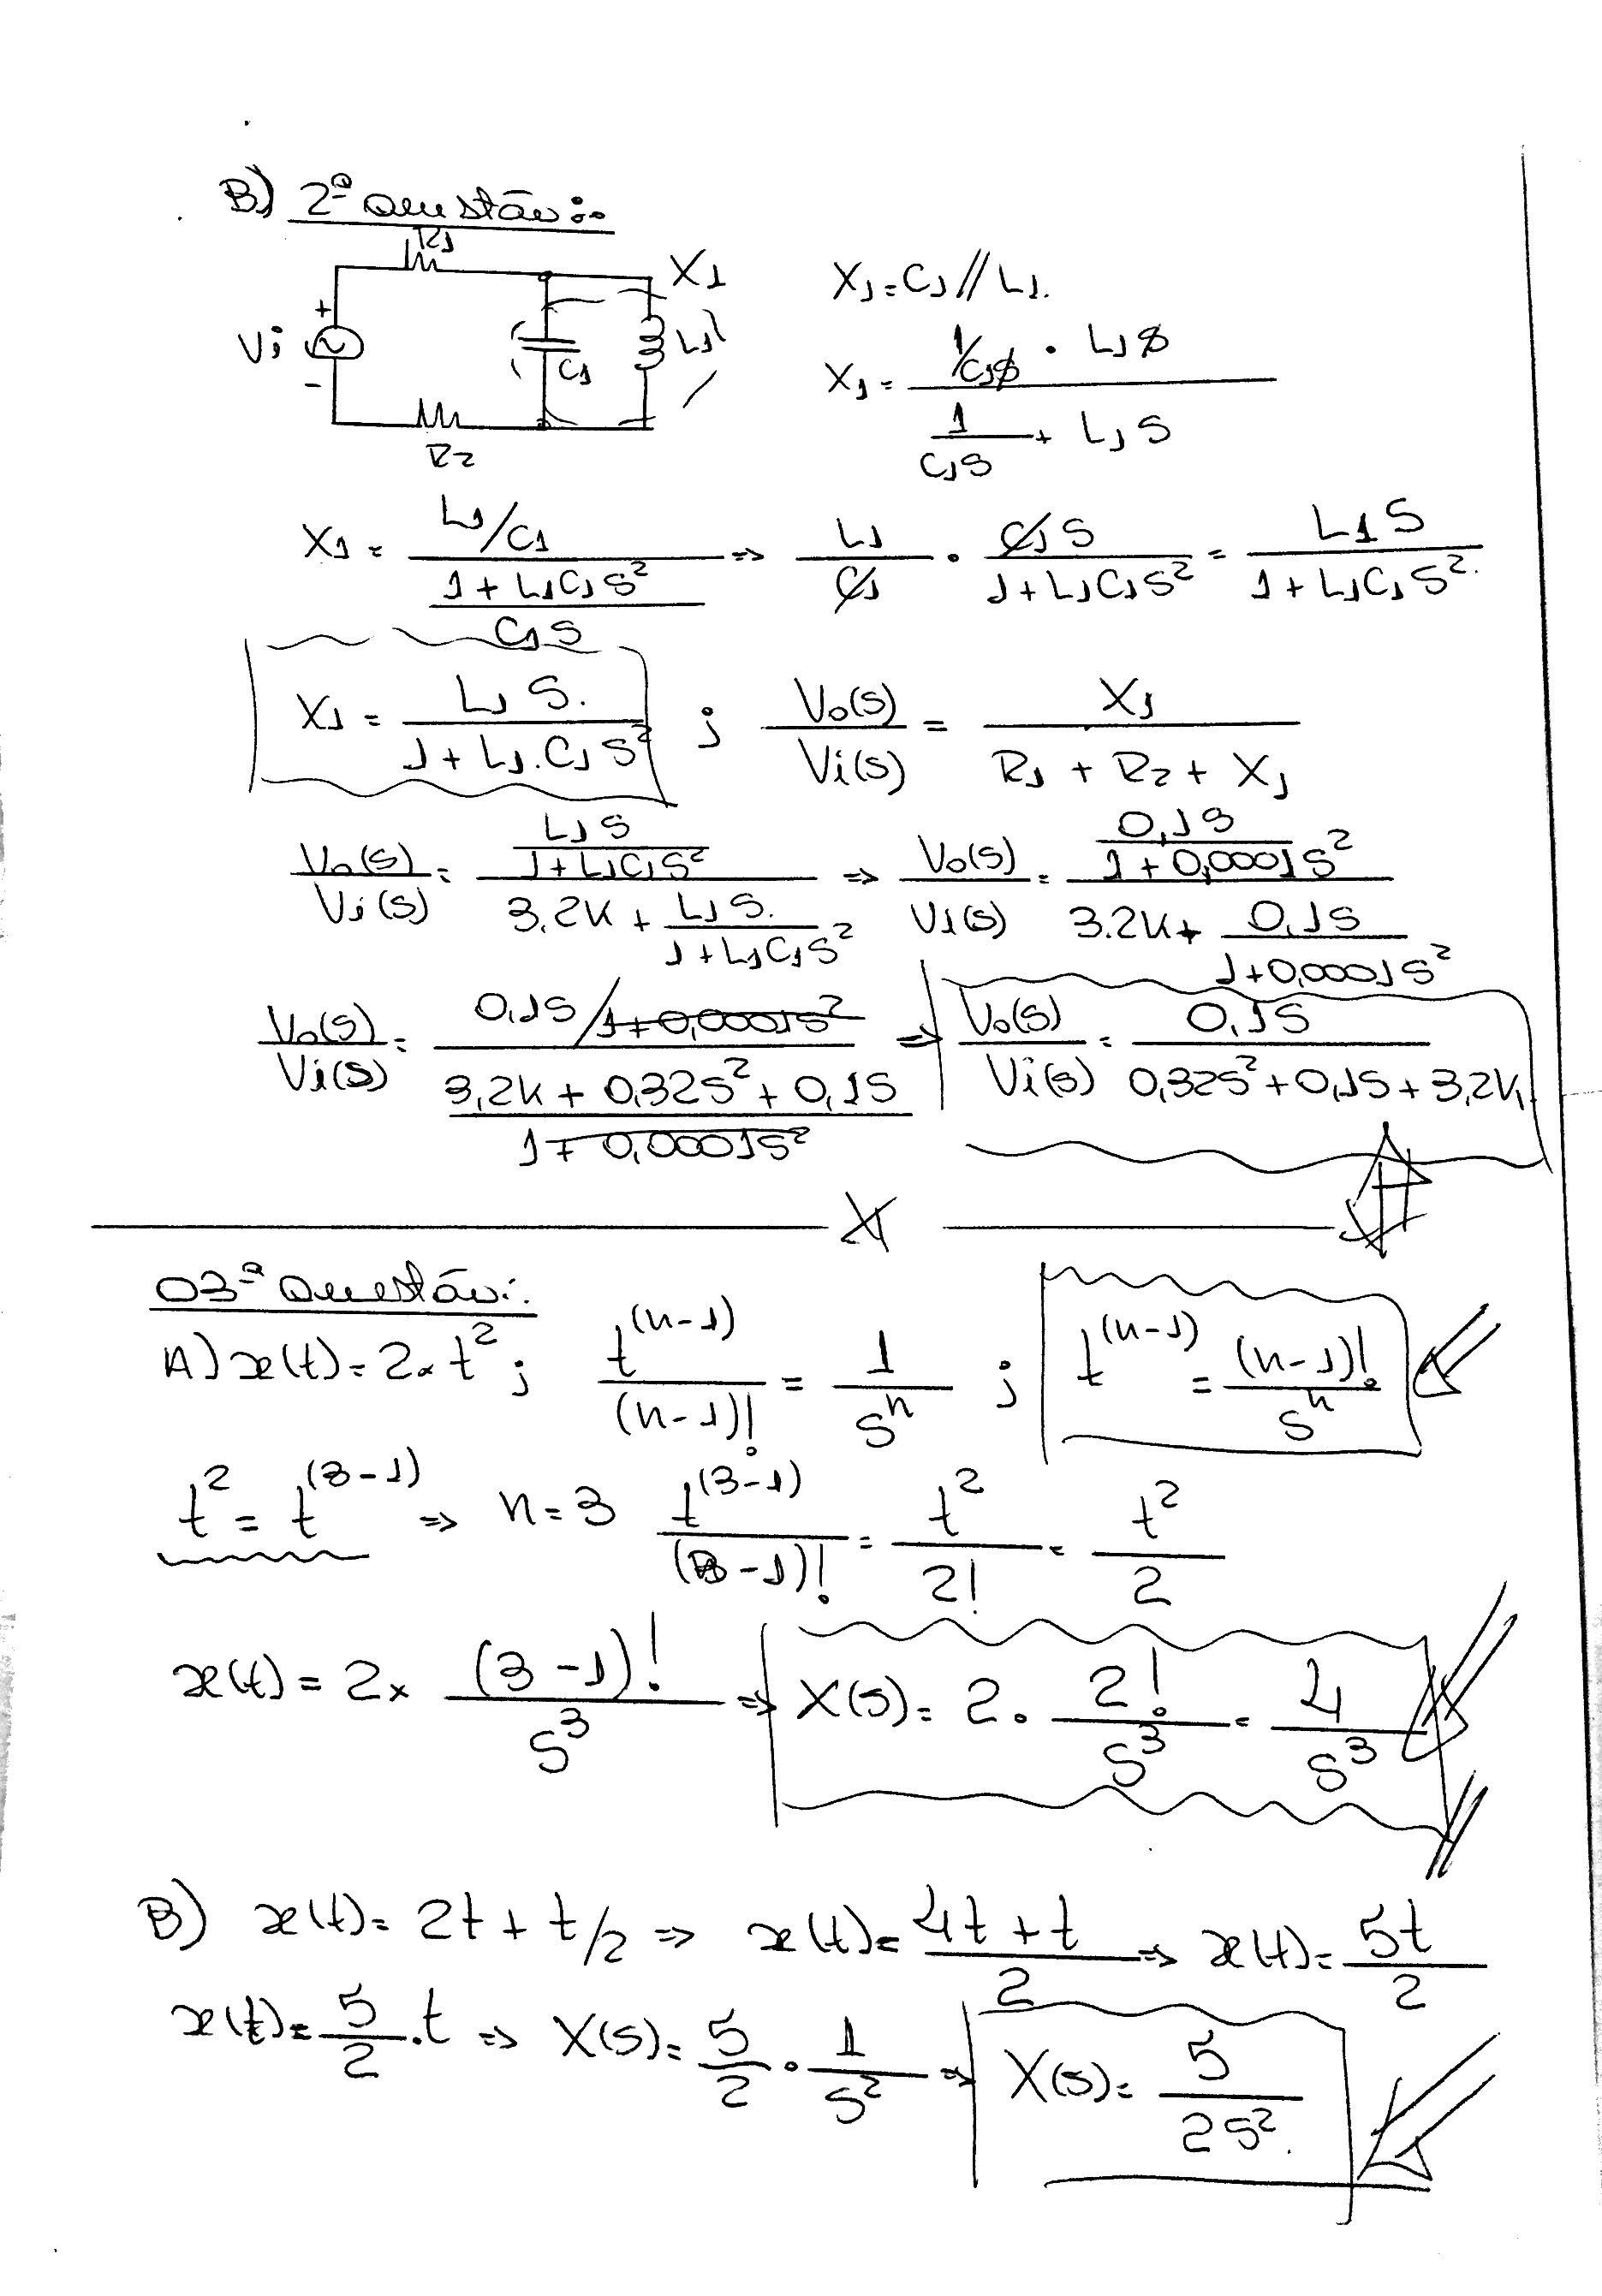 B) 2ª Questão:
R1
X1
X1 = C1 // L1.
+
Vi
-
C1
L1
R2
X1 = (1/C1S · L1S) / (1/C1S + L1S)
X1 = (L1/C1) / ((1 + L1C1S²)/C1S) => L1/C1 · C1S/(1 + L1C1S²) = L1S/(1 + L1C1S².)
X1 = L1S. / (1 + L1.C1S²) ; Vo(s)/Vi(s) = X1 / (R1 + R2 + X1)
Vo(s)/Vi(s) = (L1S/(1 + L1C1S²)) / (3,2K + L1S./(1 + L1C1S²)) => Vo(s)/Vi(s) = (0,1S/(1 + 0,0001S²)) / (3.2K + 0,1S/(1 + 0,0001S²))
Vo(s)/Vi(s) = (0,1S/1+0,0001S²) / ((3,2K + 0,32S² + 0,1S)/(1 + 0,0001S²)) => Vo(s)/Vi(s) = 0,1S / (0,32S² + 0,1S + 3,2K)
X
03ª Questão:
A) x(t) = 2 × t² ; t^(n-1)/(n-1)! = 1/S^n ; t^(n-1) = (n-1)!/S^n
t² = t^(3-1) => n = 3 t^(3-1)/(3-1)! = t²/2! = t²/2
x(t) = 2 × (3-1)!/S³ => X(S) = 2 · 2!/S³ = 4/S³
B) x(t) = 2t + t/2 => x(t) = (4t + t)/2 => x(t) = 5t/2
x(t) = 5/2 . t => X(S) = 5/2 · 1/S² => X(S) = 5/2S².